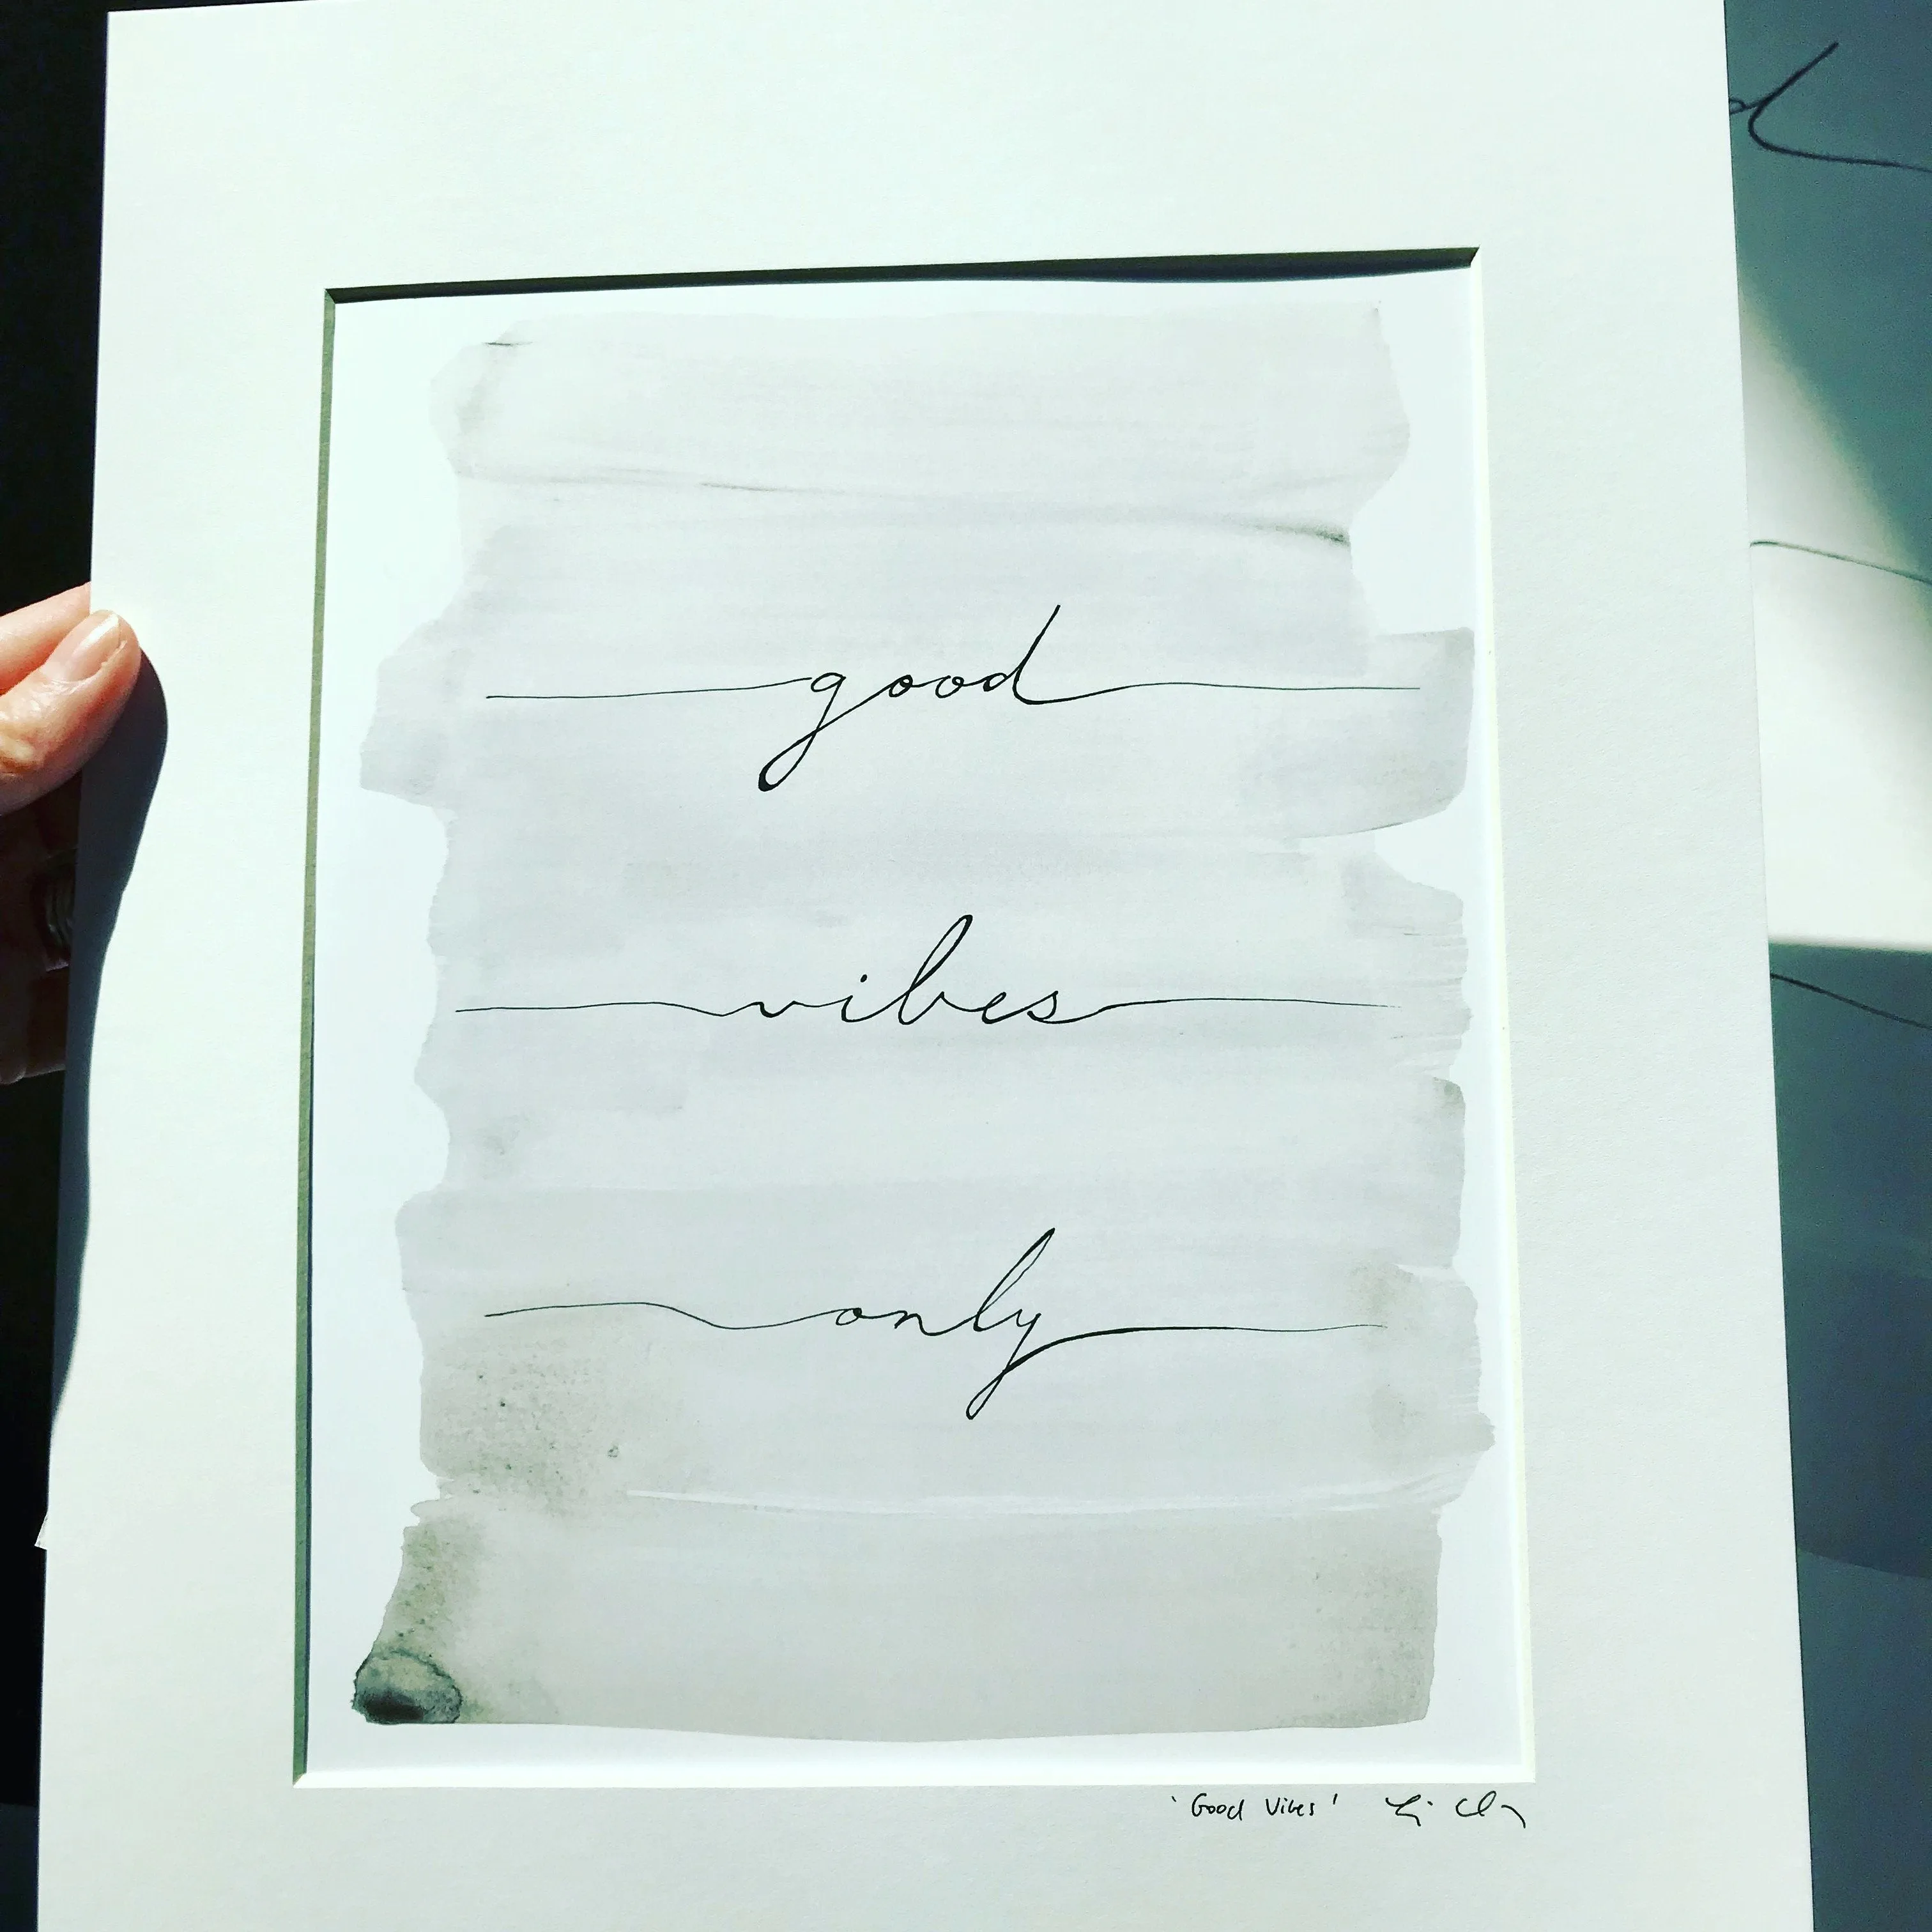 good
vibes
only
'Good Vibes'